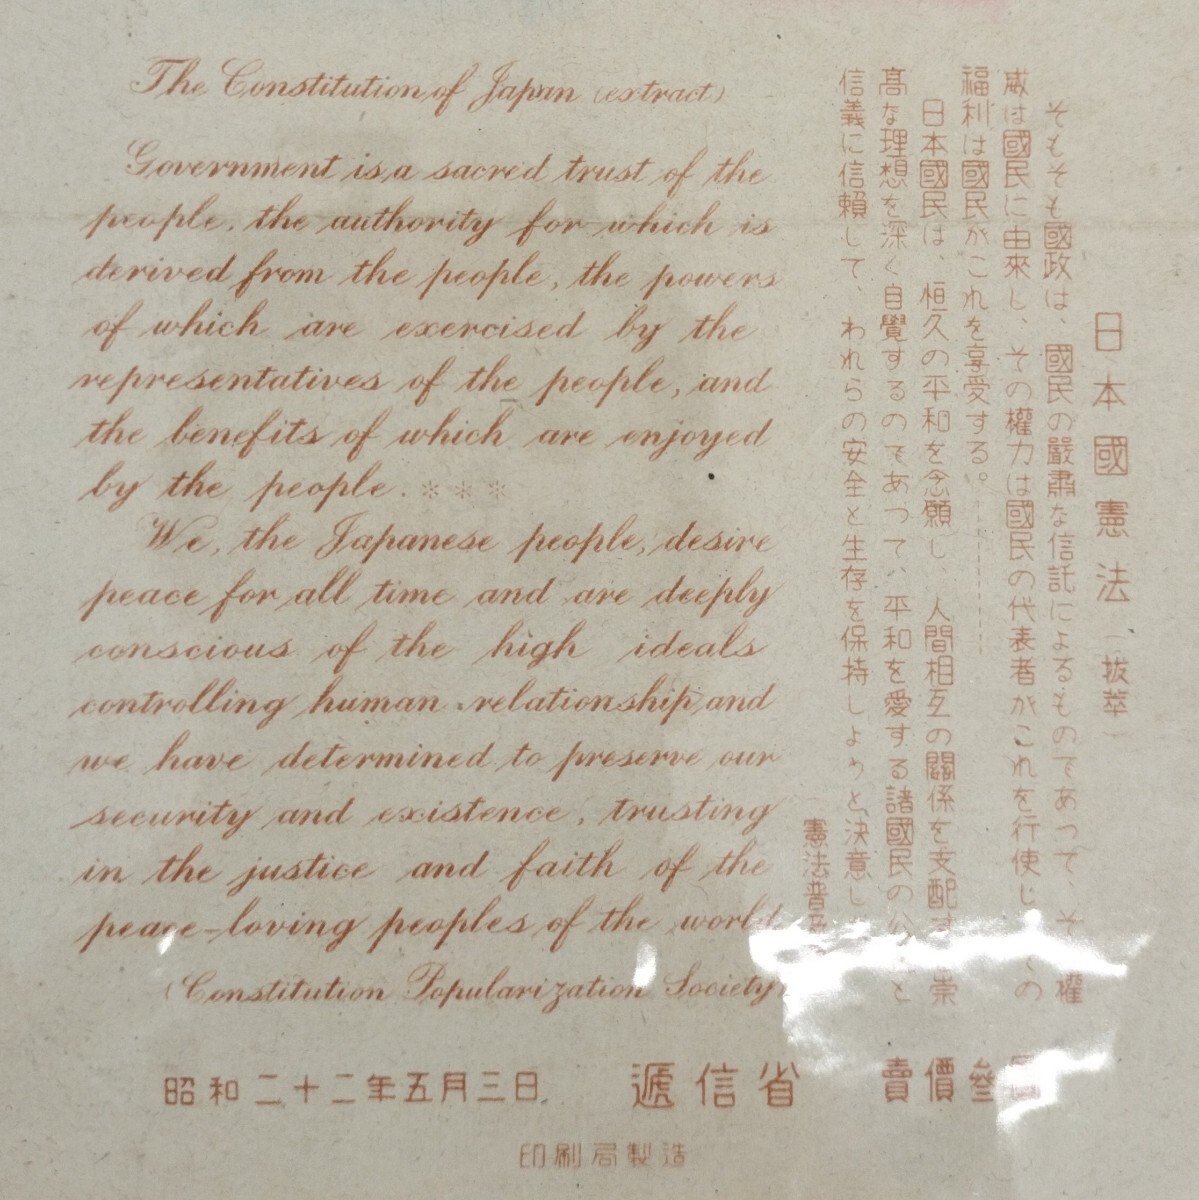 The Constitution of Japan (extract)
Government is a sacred trust of the
people, the authority for which is
derived from the people, the powers
of which are exercised by the
representatives of the people, and
the benefits of which are enjoyed
by the people. ***
We, the Japanese people, desire
peace for all time and are deeply
conscious of the high ideals
controlling human relationship, and
we have determined to preserve our
security and existence, trusting
in the justice and faith of the
peace-loving peoples of the world
(Constitution Popularization Society)
日本國憲法(拔萃)
そもそも國政は、國民の嚴肅な信託によるものであつて、そ權
威は國民に由來し、その權力は國民の代表者がこれを行使しの
福利は國民がこれを享受する。……
日本國民は、恒久の平和を念願し、人間相互の關係を支配す崇
高な理想を深く自覺するのであつて、平和を愛する諸國民の公と
信義に信賴して、われらの安全と生存を保持しようと決意し
憲法普及
昭和二十二年五月三日 遞信省 賣價參圓
印刷局製造